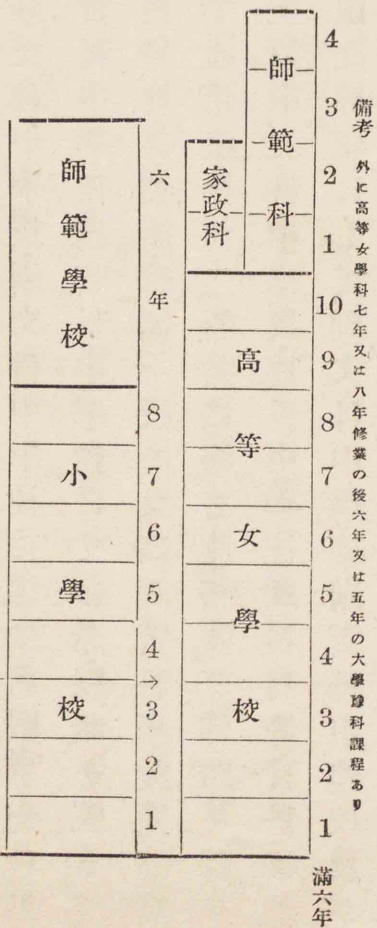 備考 外に高等女學科七年又は八年修業の後六年又は五年の大學豫科課程あり
4
3
2
1
10
9
8
7
6
5
4
3
2
1
滿六年
師範科
家政科
高等女學校
六年
8
7
6
5
4
→
3
2
1
師範學校
小學校